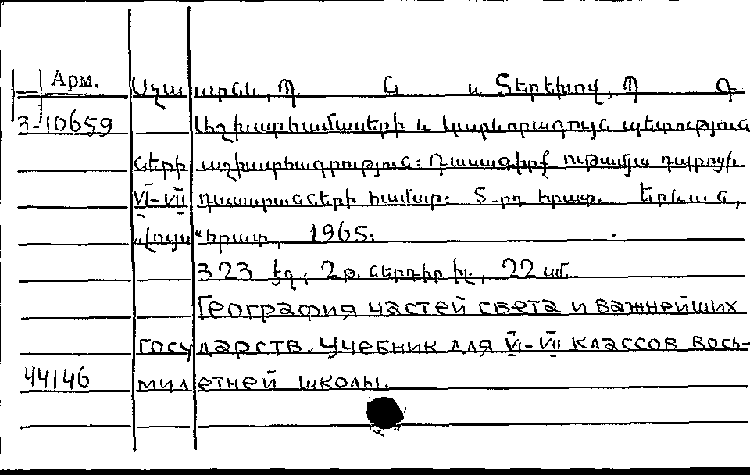 Арм.
Պ. Գ. և Տերեխով, Պ. Գ.
3-10659 Աշխարհամասերի և կարևորագույն պետություն
ների աշխարհագրություն: Դասագիրք ութամյա դպրոցի
VI-VII դասարանների համար: 5-րդ հրատ. Երևան,
«Լույս» հրատ., 1965.
323 էջ, 2 թ. ներդիր իլ., 22 սմ.
География частей света и важнейших
государств. Учебник для VI-VII классов вось-
44146 милетней школы.